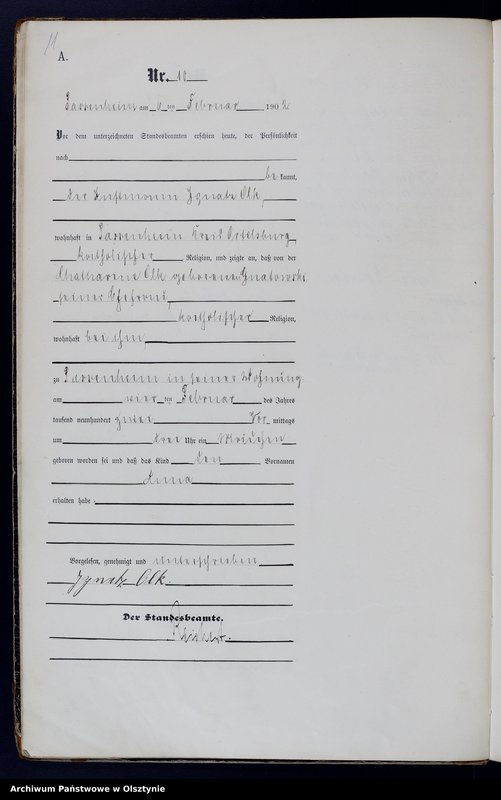 11
A.
Nr. 10
Passenheim am ten Februar 1902
Vor dem unterzeichneten Standesbeamten erschien heute, der Persönlichkeit
nach
bekannt,
der Ignatz Olk,
wohnhaft in Passenheim Kreis Ortelsburg,
katholischer Religion, und zeigte an, daß von der
Olk geborenen
seiner Ehefrau,
katholischer Religion,
wohnhaft bei ihm
zu Passenheim in seiner Wohnung
am vier ten Februar des Jahres
tausend neunhundert zwei Vor mittags
um drei Uhr ein Mädchen
geboren worden sei und daß das Kind den Vornamen
Anna
erhalten habe.
Vorgelesen, genehmigt und unterschrieben
Ignatz Olk.
Der Standesbeamte.
Archiwum Państwowe w Olsztynie